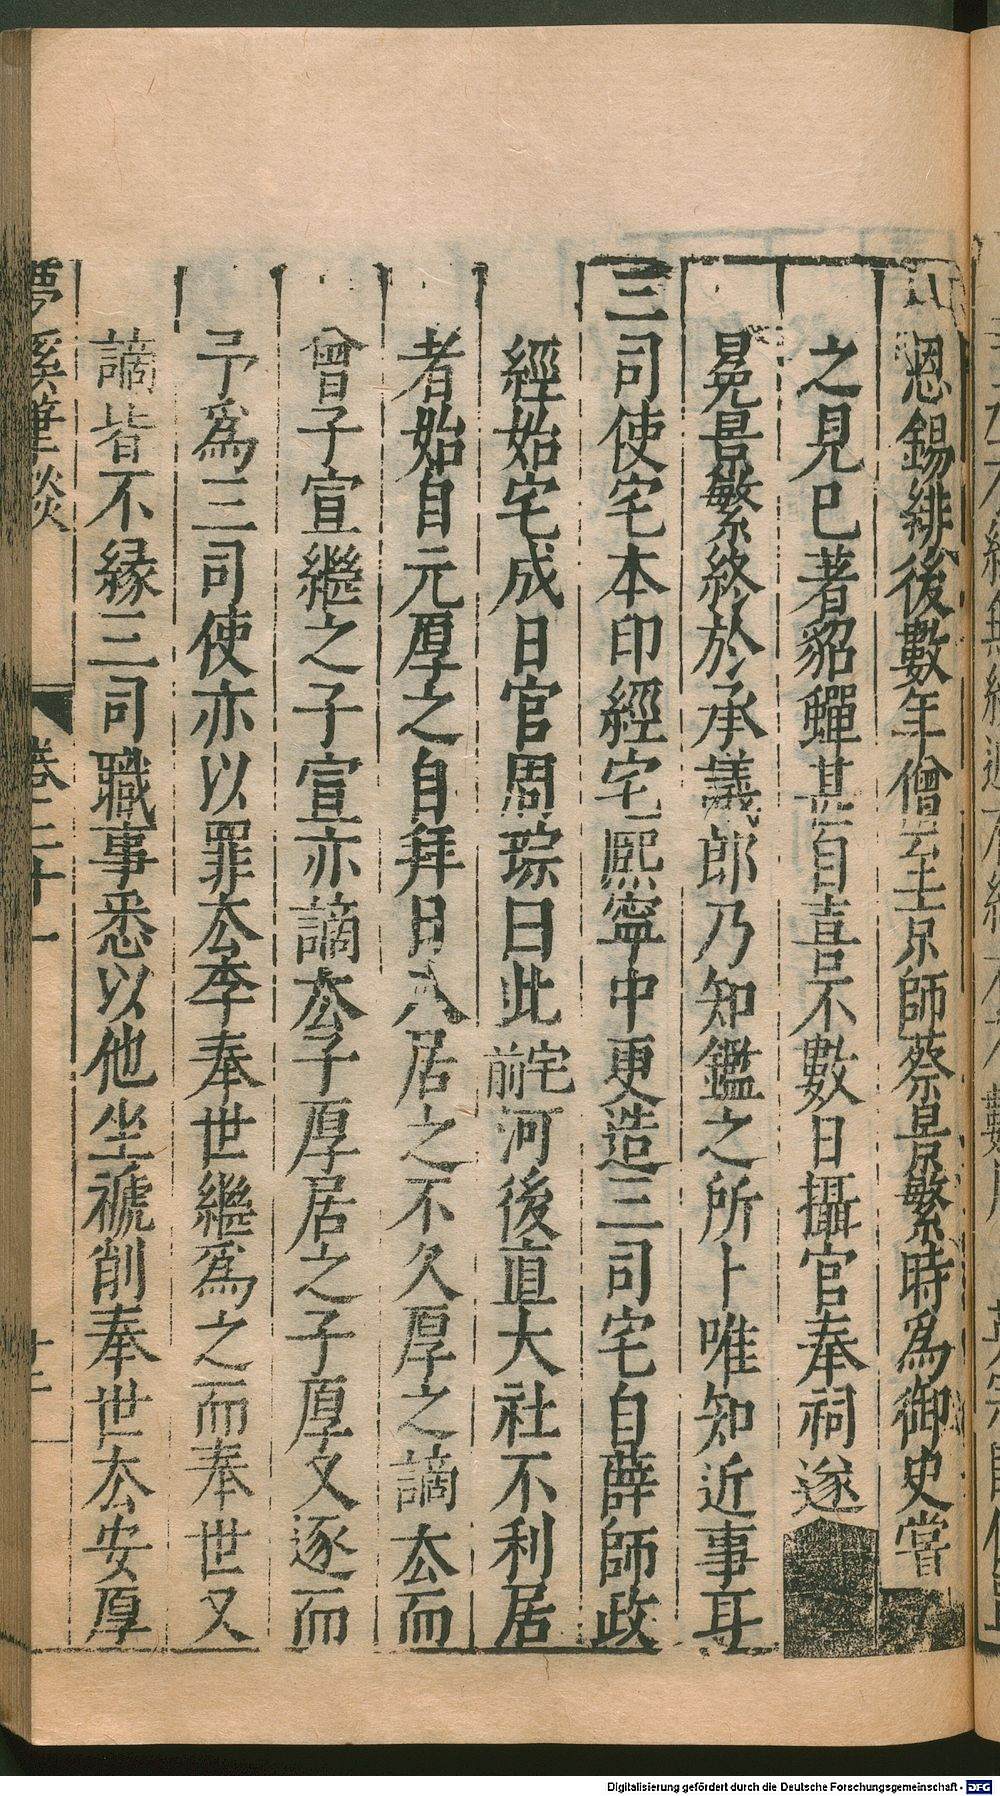 恩錫緋後數年僧至京師蔡景繁時爲御史嘗
之見巳著貂蟬甚自喜不數日攝官奉祠遂
晃景繁終於承議郎乃知鑑之所卜唯知近事耳
三司使宅本印經宅熙寧中更造三司宅自薛師政
經始宅成日官周琮曰此宅前河後直大社不利居
者始自元厚之自拜日入居之不久厚之謫去而
曾子宣繼之子宣亦謫去子厚居之子厚又逐而
予爲三司使亦以罪去李奉世繼爲之而奉世又
謫皆不縁三司職事悉以他坐褫削奉世去安厚
夢溪筆談 卷二十一
Digitalisierung gefördert durch die Deutsche Forschungsgemeinschaft - DFG